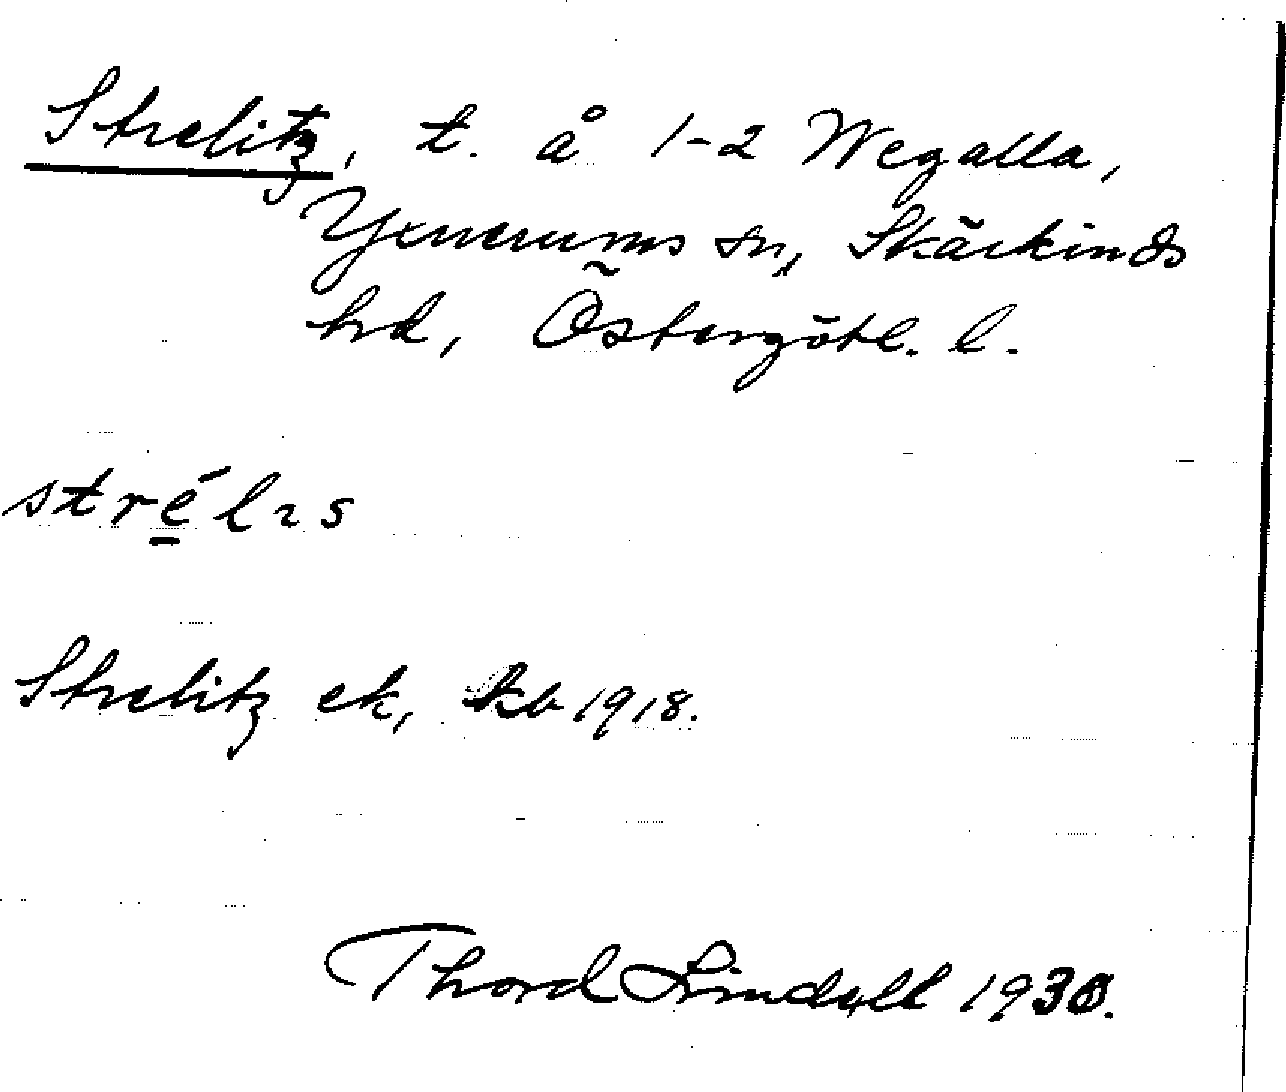 Strelitz, t. å 1-2 Wegalla,
Yxnerums sn, Skärkinds
hd, Östergötl. l.
strélɩs
Strelitz ek, kb 1918.
Thord Lindell 1930.